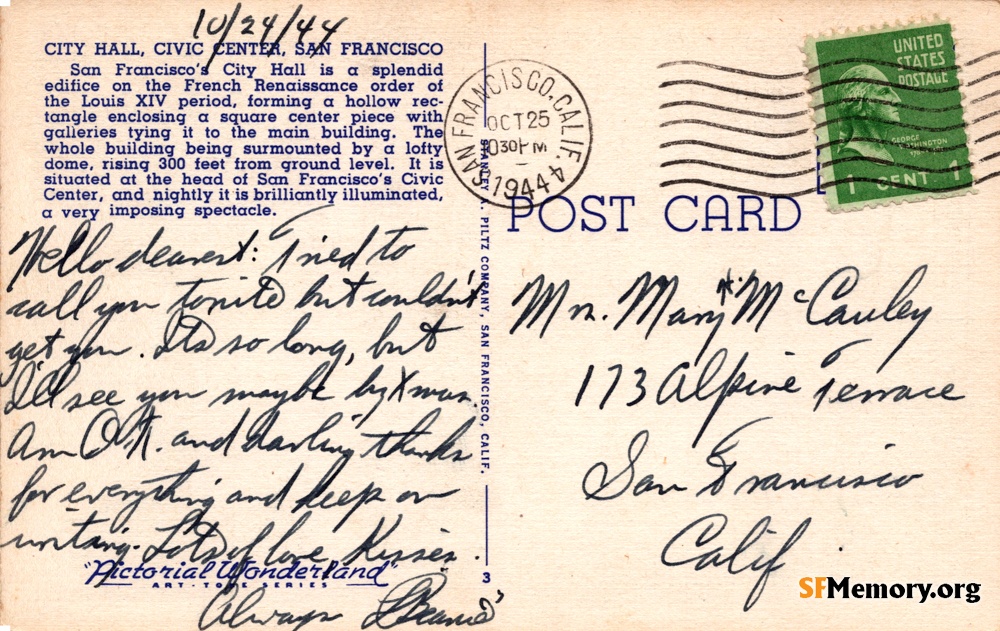 10/24/44
CITY HALL, CIVIC CENTER, SAN FRANCISCO
San Francisco's City Hall is a splendid
edifice on the French Renaissance order of
the Louis XIV period, forming a hollow rec-
tangle enclosing a square center piece with
galleries tying it to the main building. The
whole building being surmounted by a lofty
dome, rising 300 feet from ground level. It is
situated at the head of San Francisco's Civic
Center, and nightly it is brilliantly illuminated,
a very imposing spectacle.
Hello dearest: Tried to
call you tonite but couldn't
get you. Its so long, but
I'll see you maybe by Xmas.
Am O.K. and darling thanks
for everything and keep on
writing. Lots of love, Kisses.
Always
"Pictorial Wonderland"
ART-TONE SERIES
STANLEY A. PILTZ COMPANY, SAN FRANCISCO, CALIF.
3
SAN FRANCISCO, CALIF.
OCT 25
1030 PM
1944
UNITED
STATES
POSTAGE
GEORGE
WASHINGTON
1 CENT 1
POST CARD
Mrs. Mary McCauley
173 Alpine Terrace
San Francisco
Calif
SFMemory.org